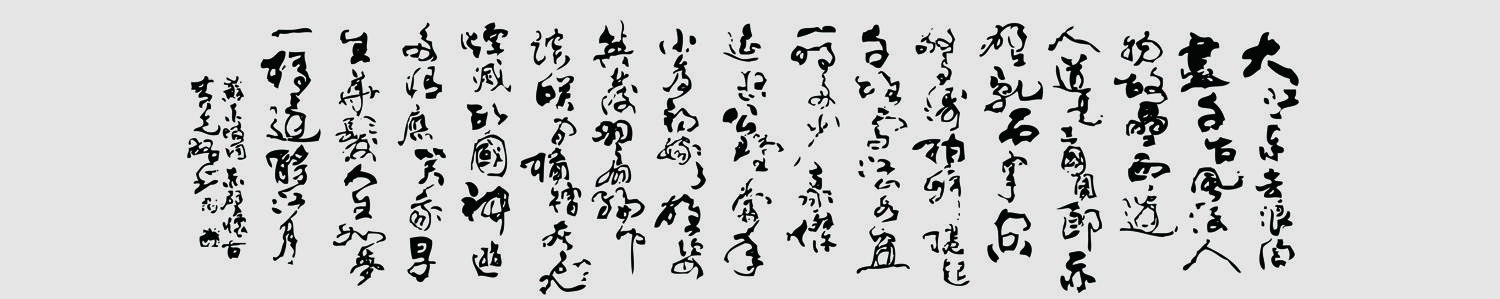 大江东去浪淘
盡千古風流人
物故壘西邊
人道是三國周郎赤
壁乱石穿空
驚濤拍岸捲起
千堆雪江山如畫
一時多少豪傑
遙想公瑾當年
小喬初嫁了雄姿
英發羽扇綸巾
談笑間檣櫓灰飛
煙滅故國神遊
多情應笑我早
生華髮人生如夢
一樽還酹江月
蘇东坡词赤壁懷古